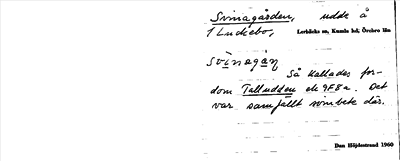 Svinagården, udde å
1 Luckebo, Lerbäcks sn, Kumla hd, Örebro län
svìnagàn
Så kallades for-
dom Talludden ek 9F8a. Det
var samfällt svinbete där.
Dan Höjdestrand 1960